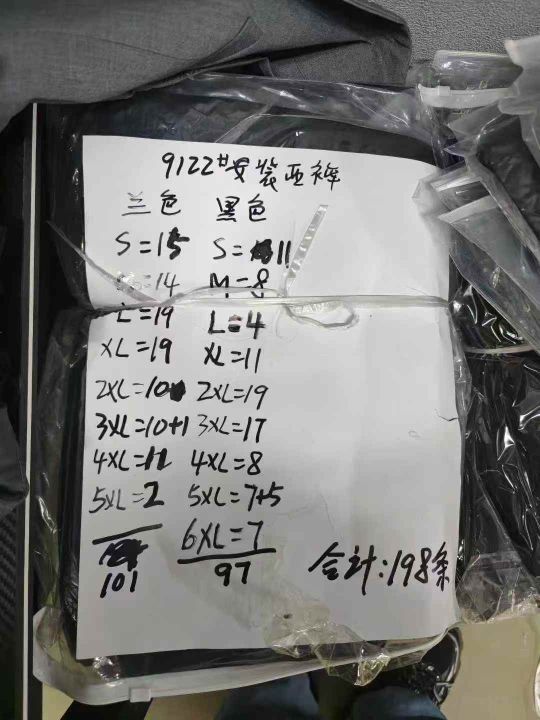 9122#女装西裤
兰色 黑色
S=15 S=11
=14 M=8
L=19 L=4
XL=19 XL=11
2XL=10 2XL=19
3XL=10+1 3XL=17
4XL=11 4XL=8
5XL=2 5XL=7+5
6XL=7
101 97 合计:198条